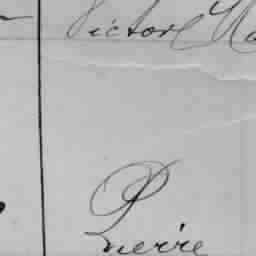 Victor
P
Pierre